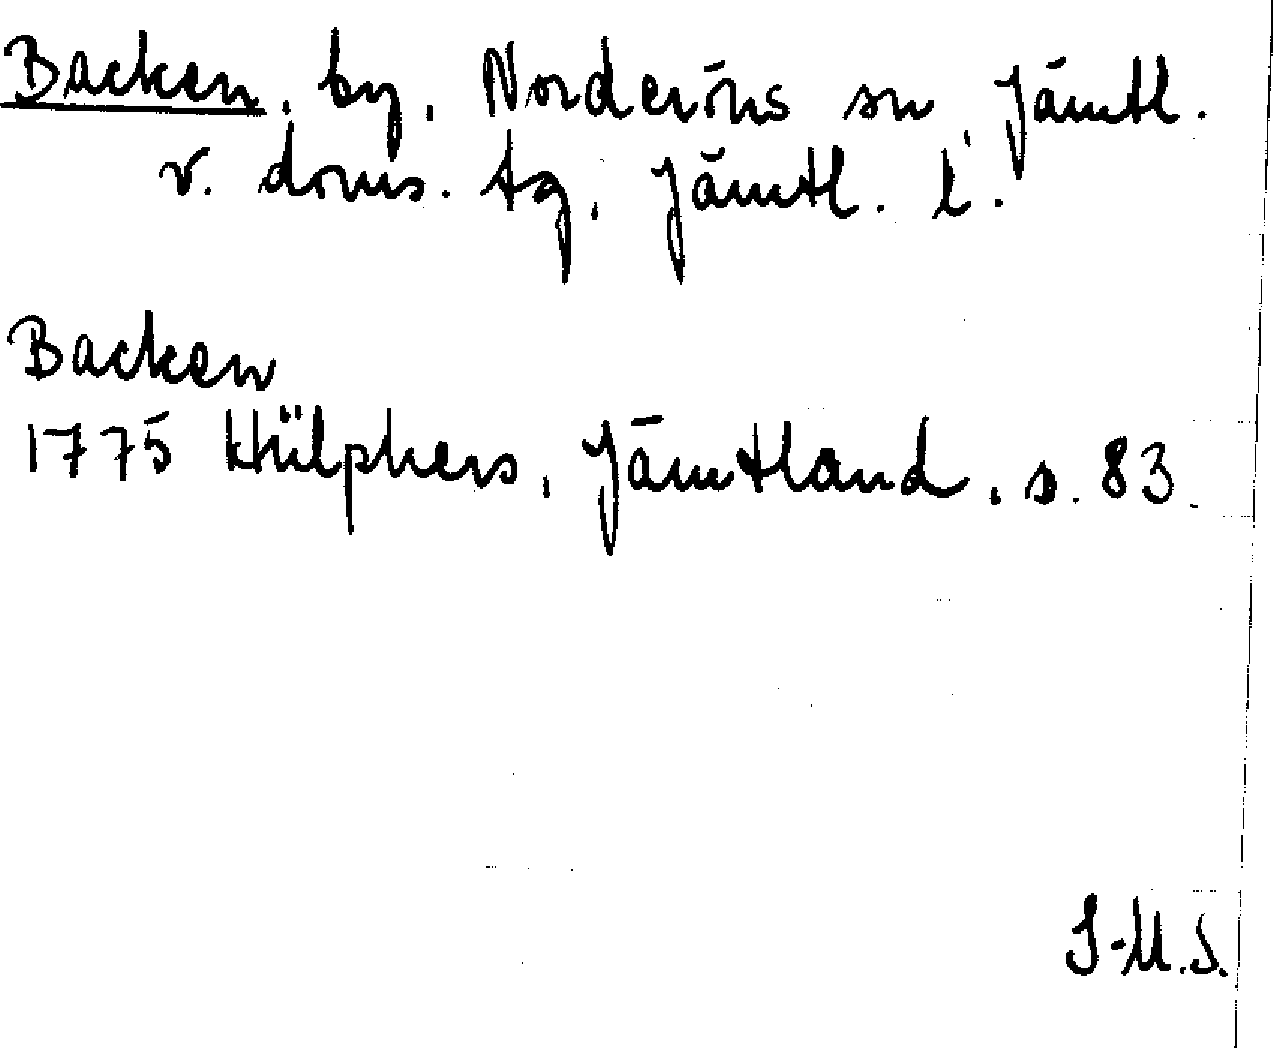 Backen, by, Norderöns sn, Jämtl.
v. doms. tg, Jämtl. l.
Backen
1775 Hülphers, Jämtland, s. 83.
I-M.S.